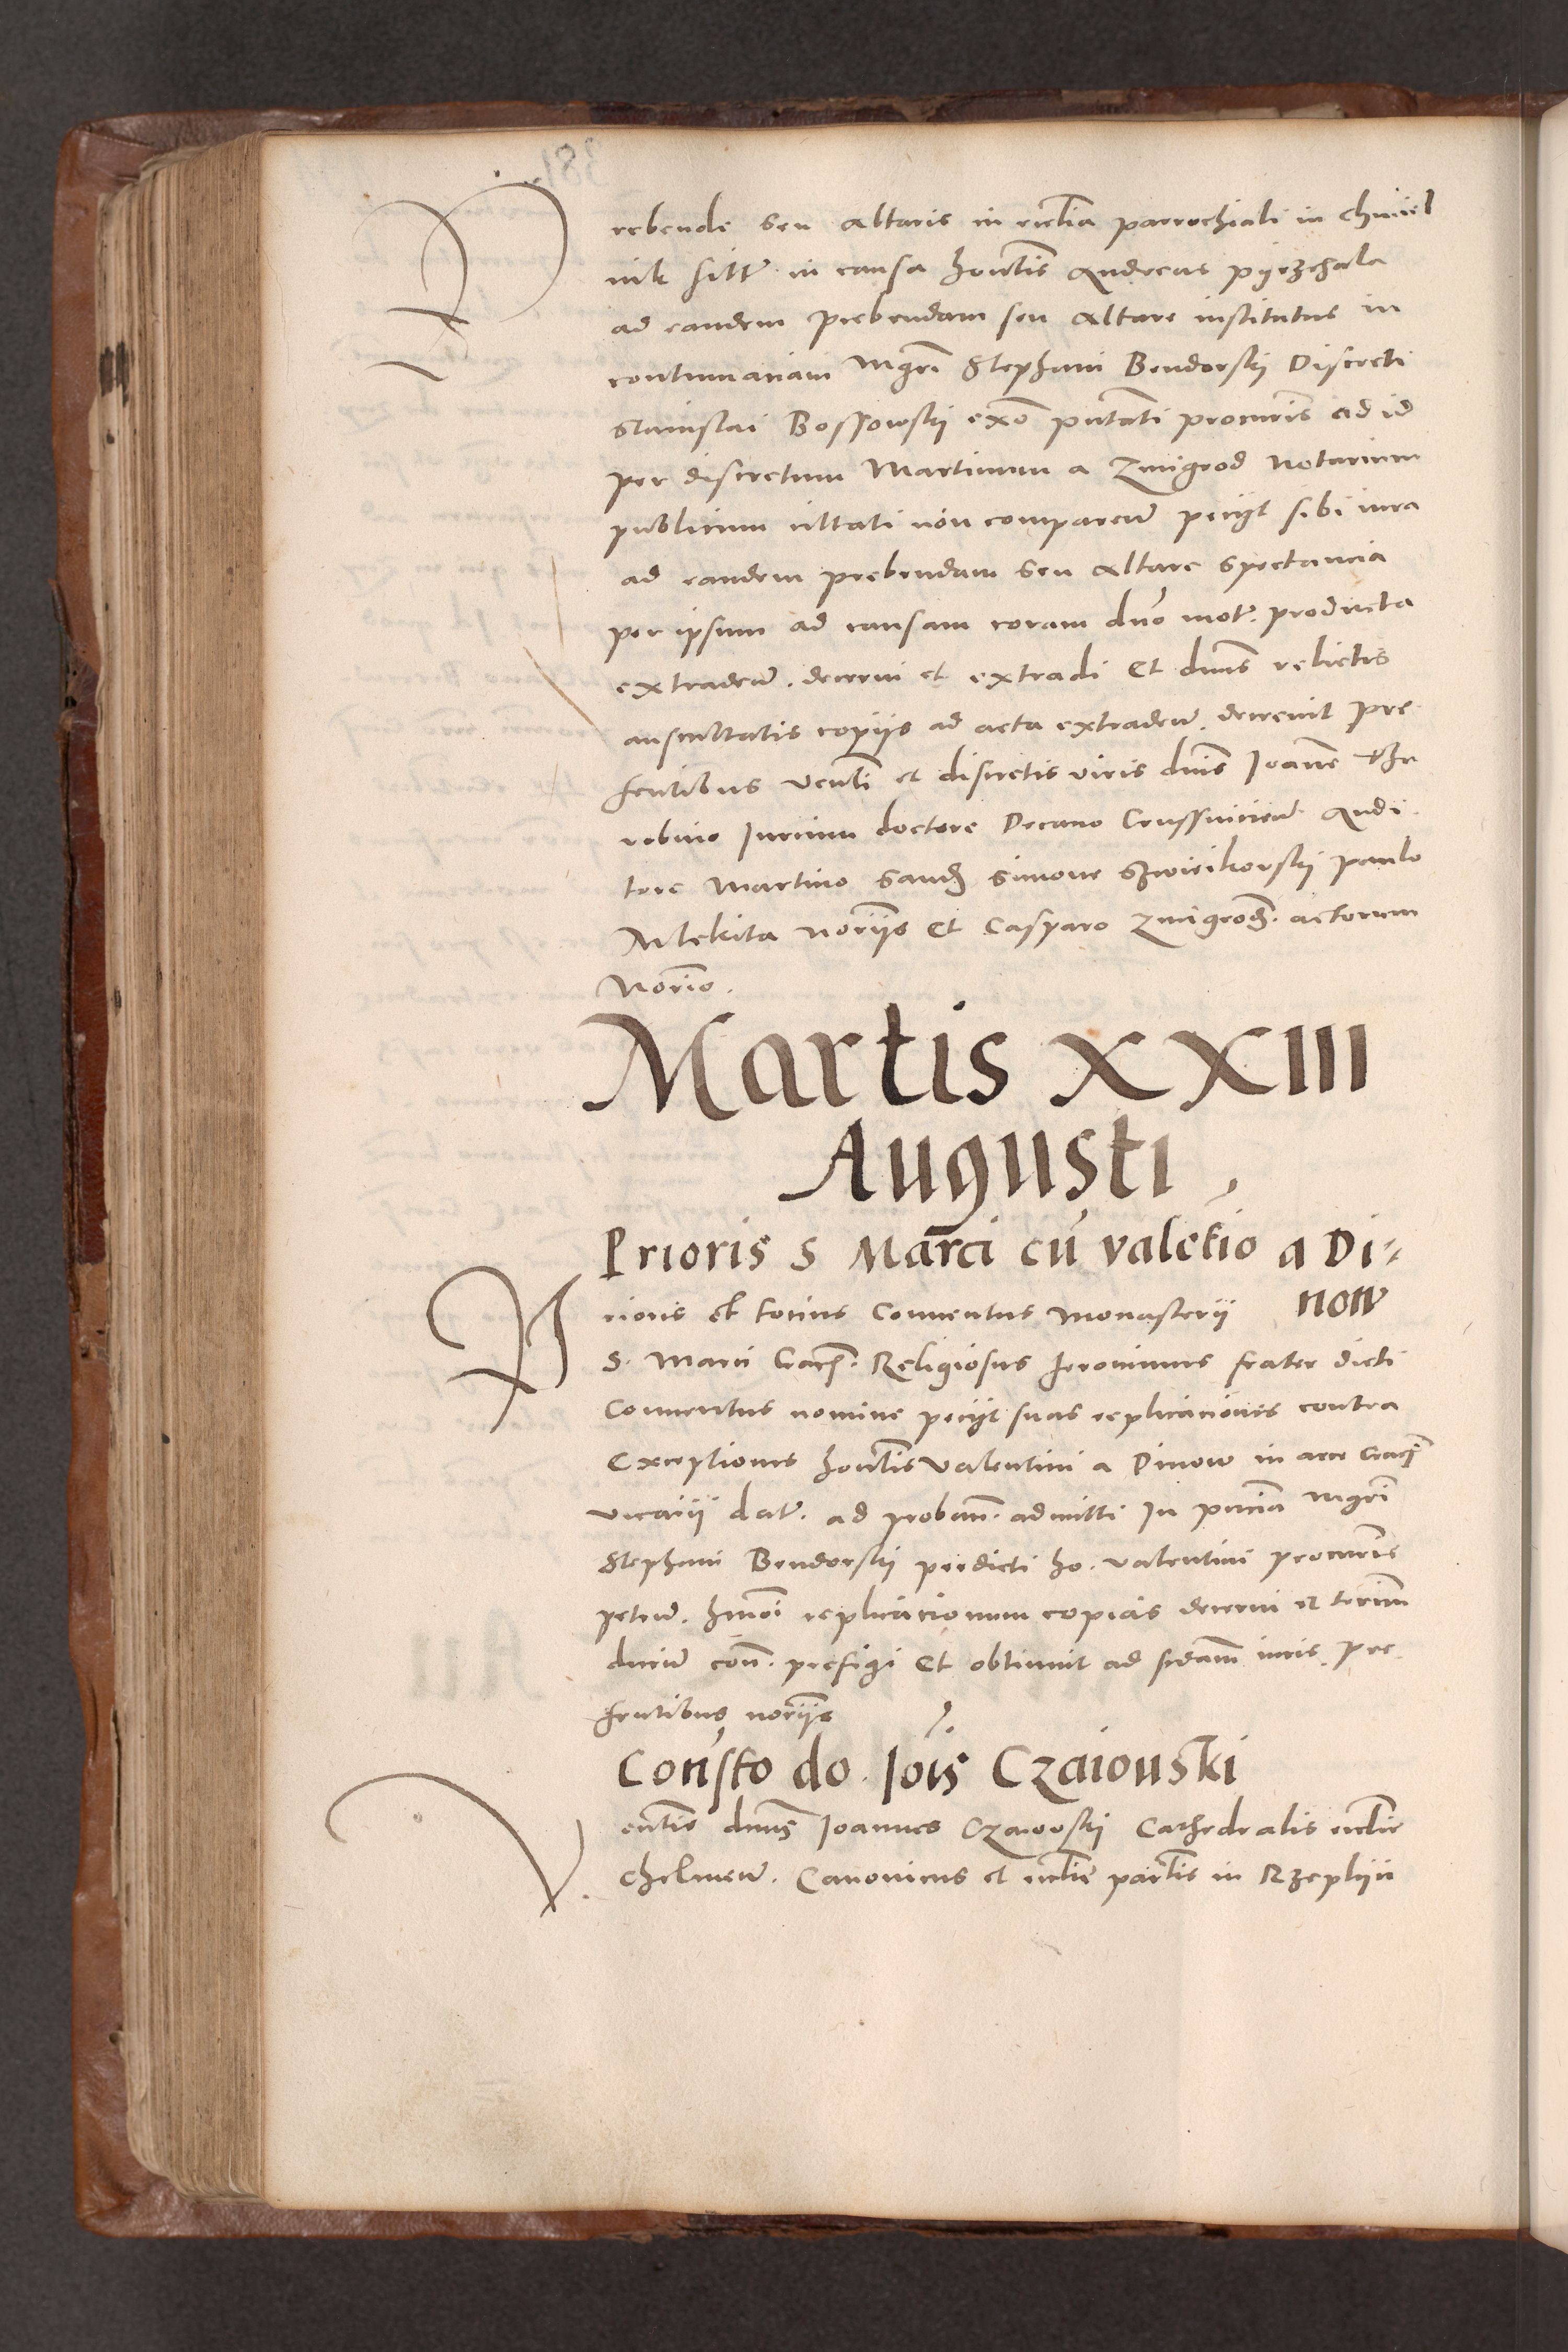 Prebende seu Altaris in eccl̄ia parrochiali in Chmiel
nik sitt̄ in causa hon̄tis Andreas Pyrzchala
ad eandem prebendam seu Altare institutus in
contumaciam mgr̄i Stephani Bendorskÿ Discreti
Stanislai Bossowskÿ exō putati procur̄is ad id
per discretum Martinum a Zmigrod Notarium
publicum citati non comparen̄ peciit sibi iura
ad eandem prebendam seu Altare spectancia
per ipsum ad causam coram dno mot. producta
extraden̄. decerni et extradi Et dnus relictis
auscultatis copiis ad acta extraden̄. decrevit pre
sentibus ven̄li et discretis viris dnis Joanne
Iurium doctore Decano Crusswicien̄ Audi
tore Martino Sand Simone Paulo
Mlekita nor̄iis et Casparo Zmigrod. actorum
Nor̄io.
Martis XXIII
Augusti
Prioris S Marci cū valētīo a Di-
now
Prioris et totius Conventus monasterii
S. Marci Crac̄. Religiosus Jeronimus frater dicti
Conventus nomine peciit suas replicaciones contra
Exceptiones hon̄lis Valentini a Dinow in arce Crac̄
vicarii dat. ad proban̄. admitti In pn̄cia mgr̄i
Stephani Bendorskÿ predicti ho. Valentini procur̄is
peten̄. hmōi replicacionum copias decerni et ter̄im
dicen̄ con̄. prefigi Et obtinuit ad sc̄dam iuris. Pre
sentibus nor̄iis
Cons̄to do. Jois Czaiouski
Ven̄lis dnus Joannes Czaiovskÿ Cathedralis eccl̄ie
Chelmen̄. Canonicus et eccl̄ie par̄lis in Rzeplÿn